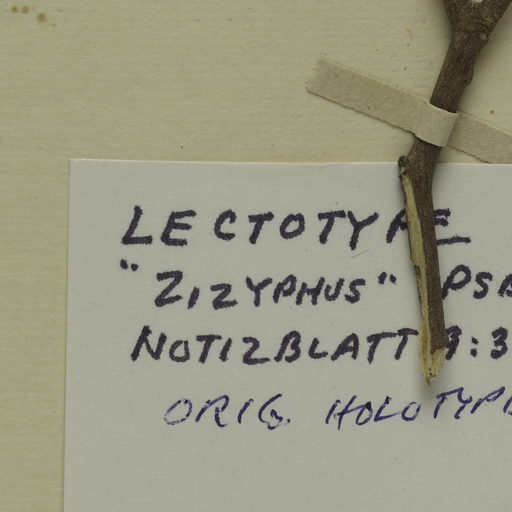 LECTOTYPE
"ZIZYPHUS"
NOTIZBLATT 9:3
ORIG. HOLOTYPE